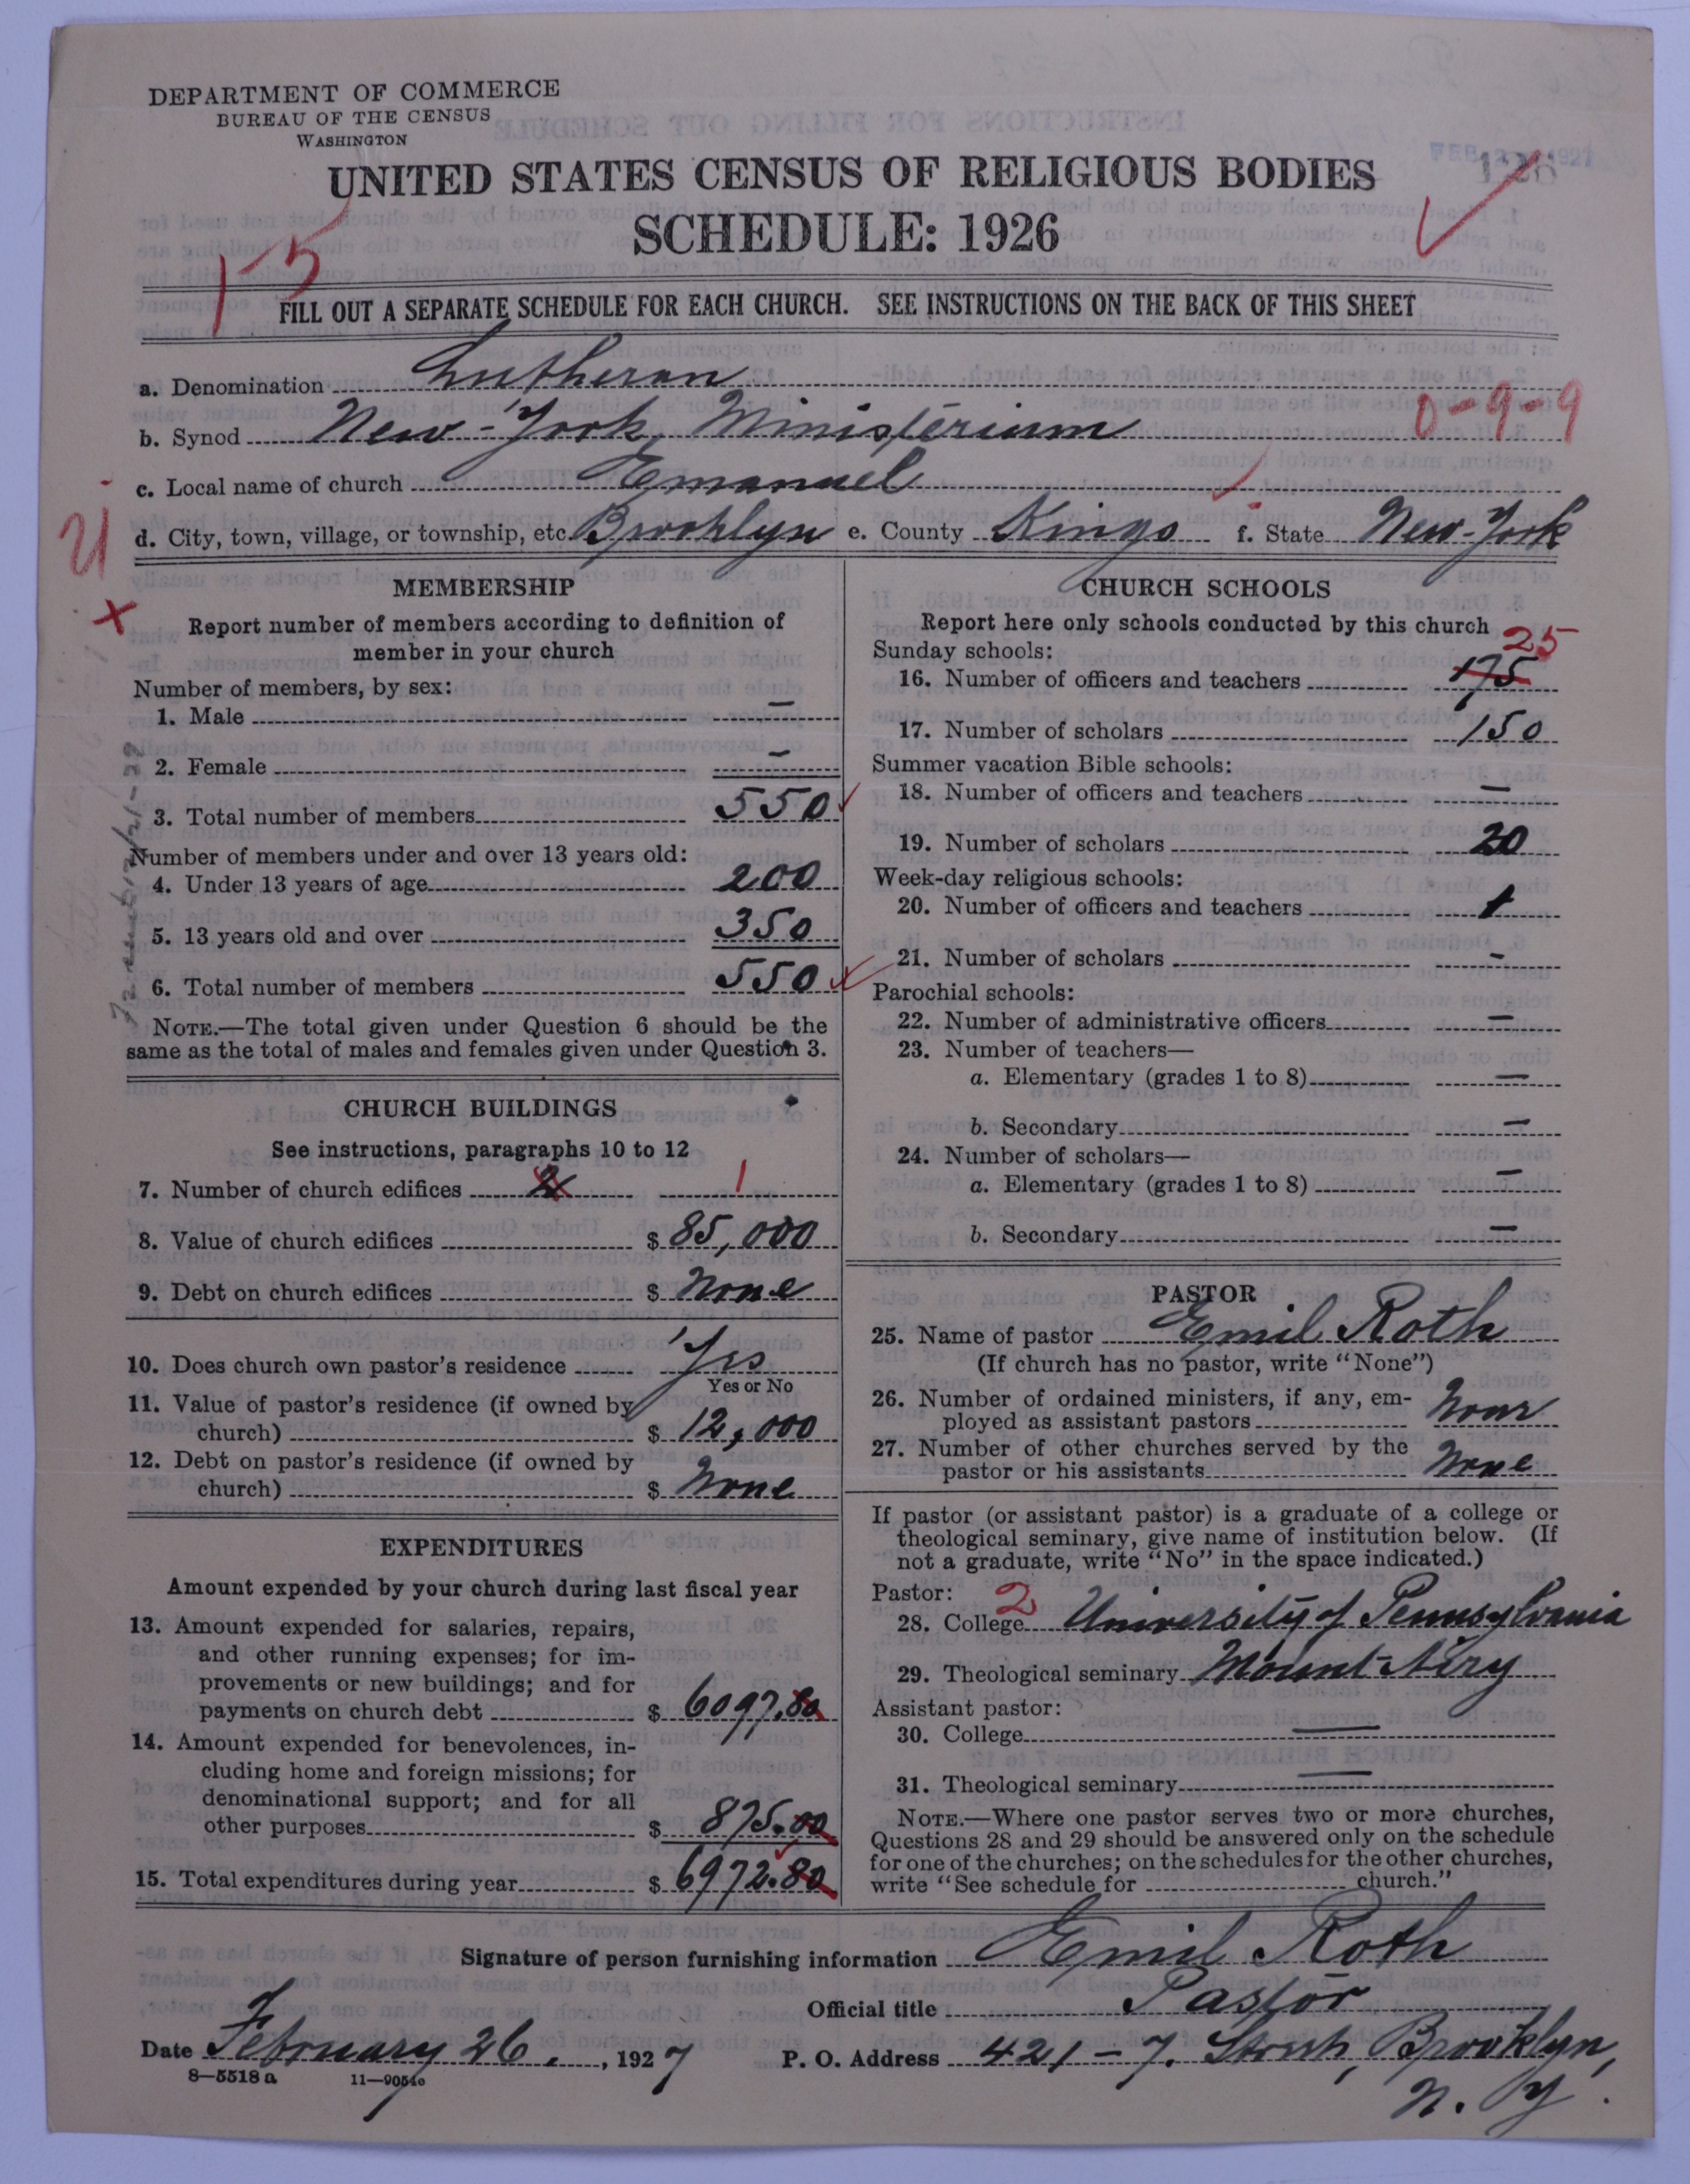 DEPARTMENT OF COMMERCE
BUREAU OF THE CENSUS
WASHINGTON
UNITED STATES CENSUS OF RELIGIOUS BODIES
SCHEDULE: 1926
1-5
FILL OUT A SEPARATE SCHEDULE FOR EACH CHURCH. SEE INSTRUCTIONS ON THE BACK OF THIS SHEET
a. Denomination Lutheran
b. Synod New-York Ministerium 0-9-9
c. Local name of church Emanuel
d. City, town, village, or township, etc. Brooklyn e. County Kings f. State New-York
MEMBERSHIP
Report number of members according to definition of
member in your church
Number of members, by sex:
1. Male —
2. Female —
3. Total number of members 550
Number of members under and over 13 years old:
4. Under 13 years of age 200
5. 13 years old and over 350
6. Total number of members 550
NOTE.—The total given under Question 6 should be the
same as the total of males and females given under Question 3.
CHURCH BUILDINGS
See instructions, paragraphs 10 to 12
7. Number of church edifices 1
8. Value of church edifices $ 85,000
9. Debt on church edifices $ None
10. Does church own pastor's residence Yes
Yes or No
11. Value of pastor's residence (if owned by
church) $ 12,000
12. Debt on pastor's residence (if owned by
church) $ None
EXPENDITURES
Amount expended by your church during last fiscal year
13. Amount expended for salaries, repairs,
and other running expenses; for im-
provements or new buildings; and for
payments on church debt $ 6097.80
14. Amount expended for benevolences, in-
cluding home and foreign missions; for
denominational support; and for all
other purposes $ 875.00
15. Total expenditures during year $ 6972.80
CHURCH SCHOOLS
Report here only schools conducted by this church
Sunday schools: 25
16. Number of officers and teachers 175
17. Number of scholars 150
Summer vacation Bible schools:
18. Number of officers and teachers —
19. Number of scholars 20
Week-day religious schools:
20. Number of officers and teachers 1
21. Number of scholars -
Parochial schools:
22. Number of administrative officers —
23. Number of teachers—
a. Elementary (grades 1 to 8) —
b. Secondary —
24. Number of scholars—
a. Elementary (grades 1 to 8) —
b. Secondary —
PASTOR
25. Name of pastor Emil Roth
(If church has no pastor, write "None")
26. Number of ordained ministers, if any, em-
ployed as assistant pastors None
27. Number of other churches served by the
pastor or his assistants None
If pastor (or assistant pastor) is a graduate of a college or
theological seminary, give name of institution below. (If
not a graduate, write "No" in the space indicated.)
Pastor: 2
28. College University of Pennsylvania
29. Theological seminary Mount-Airy
Assistant pastor:
30. College —
31. Theological seminary —
NOTE.—Where one pastor serves two or more churches,
Questions 28 and 29 should be answered only on the schedule
for one of the churches; on the schedules for the other churches,
write "See schedule for church."
Signature of person furnishing information Emil Roth
Official title Pastor
Date February 26., 1927 P. O. Address 421-7. Street, Brooklyn,
N. Y.
8—5518 a 11—9054c